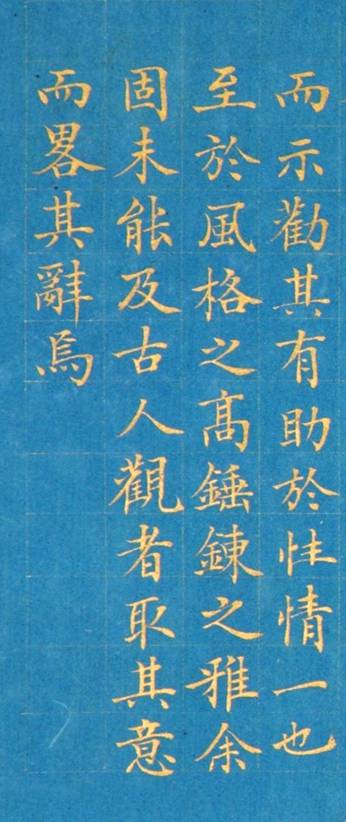 而示勸其有助於性情一也
至於風格之高錘鍊之雅余
固未能及古人觀者取其意
而畧其辭焉